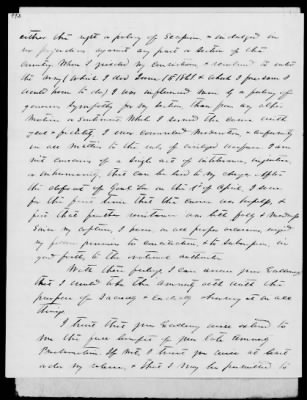 either the right or policy of Secession & indulged in
no prejudices against any part or section of the
country. When I yielded my convictions & resolved to enter
the army (which I did June 15 1861 & which I presume I
would have to do) I was influenced more by a feeling of
generous sympathy for my section than from any other
motive or sentiment. While I served the cause with
zeal & fidelity, I ever counseled moderation & conformity
in all matters to the rules of civilized warfare. I am
not conscious of a single act of intolerance,
or inhumanity, that can be laid to my charge. After
the defeat of Genl Lee on the of April, I saw
for the first time that the cause was hopeless, &
felt that further resistance was both folly & madness.
Since my capture, I have, on all proper occasions, urged
my fellow prisoners to conciliation, & to submission, in
good faith, to the national authorities.
With these feelings I can assure your Excellency
that I would take the amnesty oath with the
purpose of sincerely & faithfully observing it in all
things.
I trust that your Excellency will extend to
me the full benefits of your late Amnesty
Proclamation. If not, I trust you will at least
order my release, & that I may be permitted to